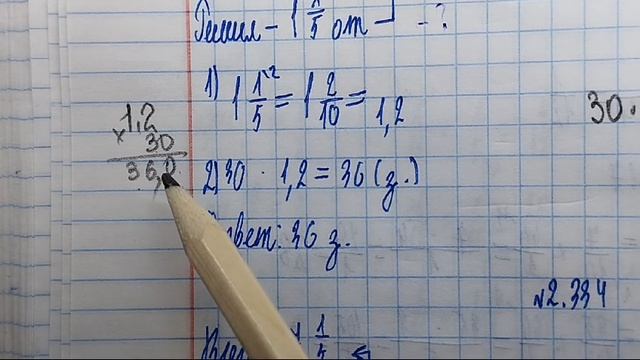 Решил - 1 1/5 от
- ?
1) 1 1/5 = 1 2/10 = 1,2
1,2
× 30
36,0
30.
2) 30 · 1,2 = 36 (з.)
Ответ: 36 з.
№2.334
1/5